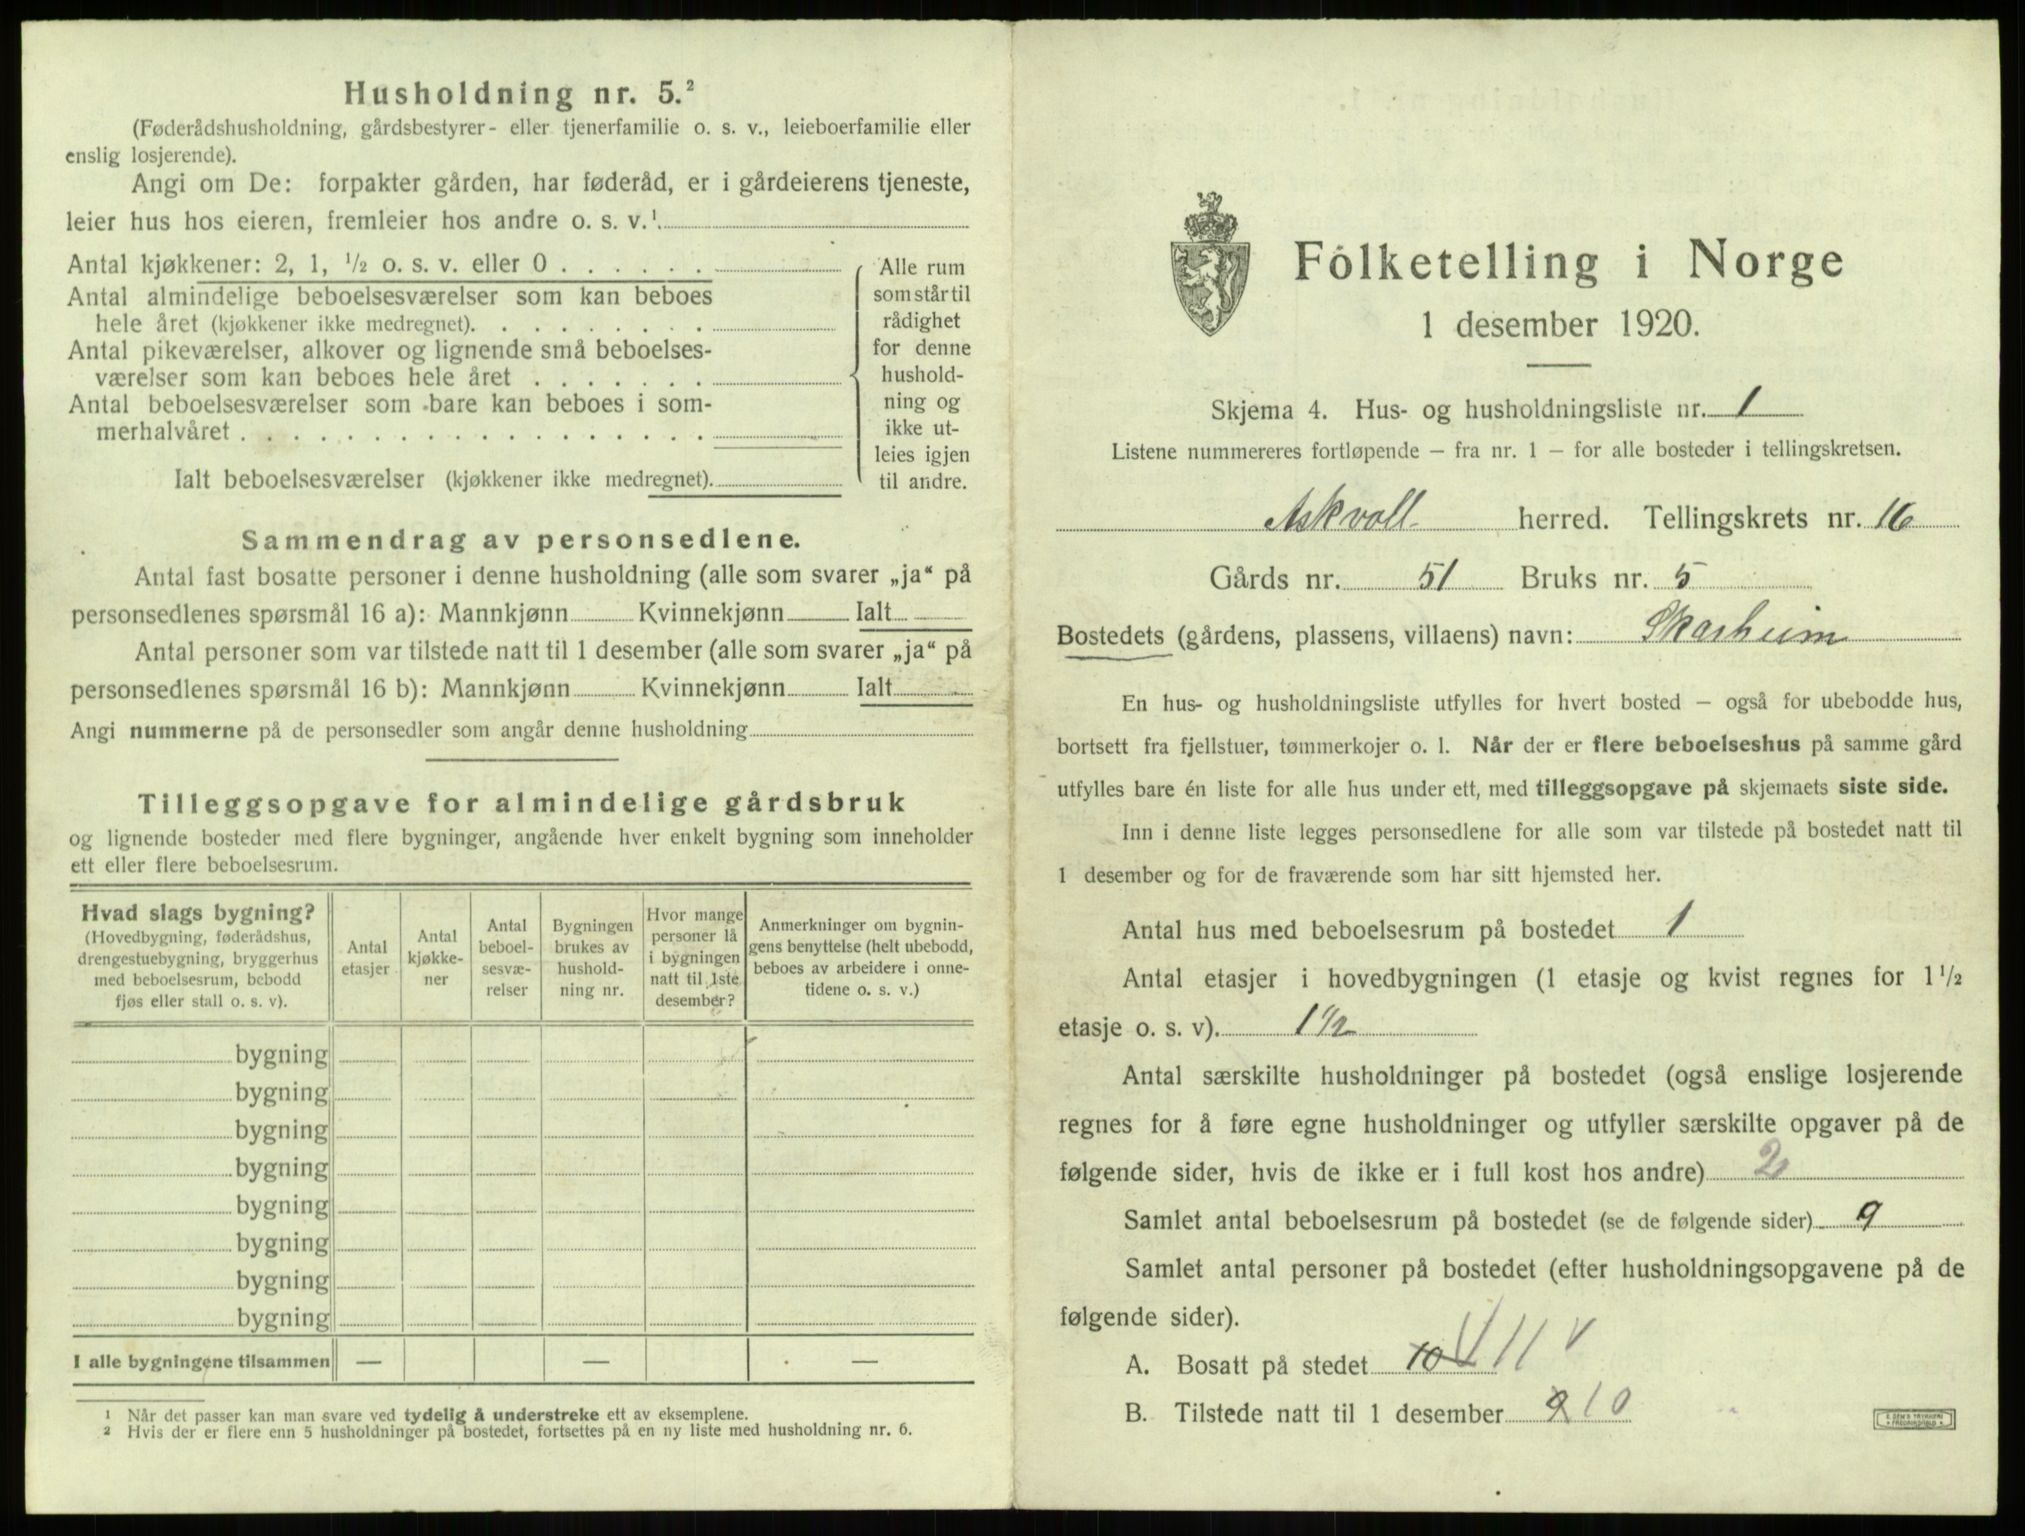 Husholdning nr. 5.²
(Føderådshusholdning, gårdsbestyrer- eller tjenerfamilie o. s. v., leieboerfamilie eller
enslig losjerende).
Angi om De: forpakter gården, har føderåd, er i gårdeierens tjeneste,
leier hus hos eieren, fremleier hos andre o. s. v.¹
Antal kjøkkener: 2, 1, ½ o. s. v. eller 0 . . . . . .
Antal almindelige beboelsesværelser som kan beboes
hele året (kjøkkener ikke medregnet). . . . . . . . .
Antal pikeværelser, alkover og lignende små beboelses-
værelser som kan beboes hele året . . . . . . .
Antal beboelsesværelser som bare kan beboes i som-
merhalvåret . . . . . . . . . . . . . . . . . .
Ialt beboelsesværelser (kjøkkener ikke medregnet).
Alle rum
som står til
rådighet
for denne
hushold-
ning og
ikke ut-
leies igjen
til andre.
Sammendrag av personsedlene.
Antal fast bosatte personer i denne husholdning (alle som svarer „ja“ på
personsedlenes spørsmål 16 a): Mannkjønn Kvinnekjønn Ialt
Antal personer som var tilstede natt til 1 desember (alle som svarer „ja“ på
personsedlenes spørsmål 16 b): Mannkjønn Kvinnekjønn Ialt
Angi nummerne på de personsedler som angår denne husholdning
Tilleggsopgave for almindelige gårdsbruk
og lignende bosteder med flere bygninger, angående hver enkelt bygning som inneholder
ett eller flere beboelsesrum.
Hvad slags bygning?
(Hovedbygning, føderådshus,
drengestuebygning, bryggerhus
med beboelsesrum, bebodd
fjøs eller stall o. s. v).
Antal
etasjer
Antal
kjøkke-
ner
Antal
beboel-
sesvæ-
relser
Bygningen
brukes av
hushold-
ning nr.
Hvor mange
personer lå
i bygningen
natt til 1ste
desember?
Anmerkninger om bygnin-
gens benyttelse (helt ubebodd,
beboes av arbeidere i onne-
tidene o. s. v.)
bygning
bygning
bygning
bygning
bygning
bygning
bygning
bygning
I alle bygningene tilsammen — — —
¹ Når det passer kan man svare ved tydelig å understreke ett av eksemplene.
² Hvis der er flere enn 5 husholdninger på bostedet, fortsettes på en ny liste med husholdning nr. 6.
Folketelling i Norge
1 desember 1920.
Skjema 4. Hus- og husholdningsliste nr. 1
Listene nummereres fortløpende — fra nr. 1 — for alle bosteder i tellingskretsen.
Askvoll herred. Tellingskrets nr. 16
Gårds nr. 51 Bruks nr. 5
Bostedets (gårdens, plassens, villaens) navn: Skarheim
En hus- og husholdningsliste utfylles for hvert bosted — også for ubebodde hus,
bortsett fra fjellstuer, tømmerkojer o. l. Når der er flere beboelseshus på samme gård
utfylles bare én liste for alle hus under ett, med tilleggsopgave på skjemaets siste side.
Inn i denne liste legges personsedlene for alle som var tilstede på bostedet natt til
1 desember og for de fraværende som har sitt hjemsted her.
Antal hus med beboelsesrum på bostedet 1
Antal etasjer i hovedbygningen (1 etasje og kvist regnes for 1 ½
etasje o. s. v). 1 ½
Antal særskilte husholdninger på bostedet (også enslige losjerende
regnes for å føre egne husholdninger og utfyller særskilte opgaver på de
følgende sider, hvis de ikke er i full kost hos andre) 2
Samlet antal beboelsesrum på bostedet (se de følgende sider) 9
Samlet antal personer på bostedet (efter husholdningsopgavene på de
følgende sider).
A. Bosatt på stedet 10 11
B. Tilstede natt til 1 desember 9 10